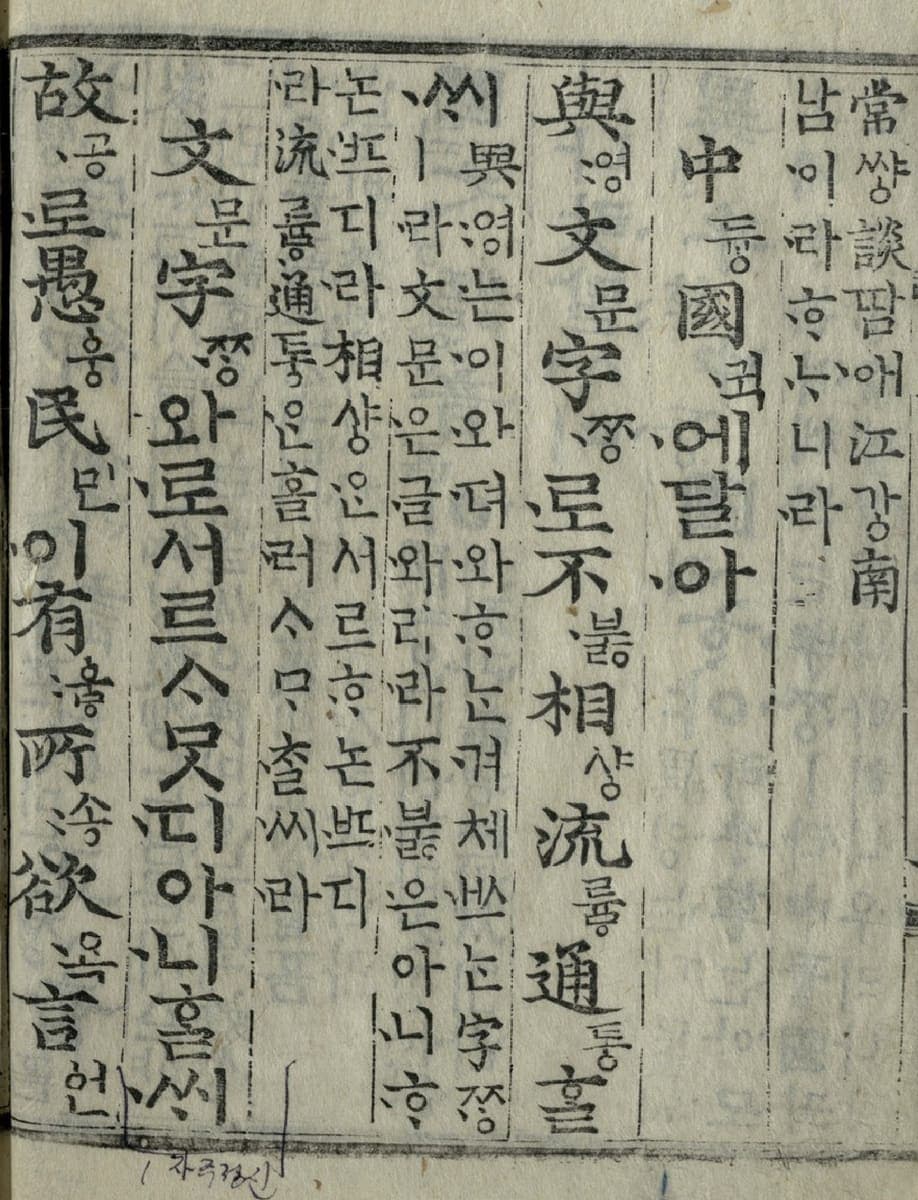 常쌰ᇰ談땀애江가ᇰ南
남이라ᄒᆞᄂᆞ니라
中듀ᇰ國귁에달아
與영文문字ᄍᆞᆼ로不부ᇙ相샤ᇰ流류ᇢ通토ᇰᄒᆞᆯ
ᄊᆡ
與영는이와뎌와ᄒᆞᄂᆞᆫ겨체ᄡᅳᄂᆞᆫ字ᄍᆞᆼ
ㅣ라文문은글와리라不부ᇙ은아니ᄒᆞ
논ᄠᅳ디라相샤ᇰᄋᆞᆫ서르ᄒᆞ논ᄠᅳ디
라流류ᇢ通토ᇰᄋᆞᆫ흘러ᄉᆞᄆᆞᄎᆞᆯ씨라
文문字ᄍᆞᆼ와로서르ᄉᆞᄆᆞᆺ디아니ᄒᆞᆯᄊᆡ
故공로愚웅民민이有우ᇢ所송欲욕言언
자주정신